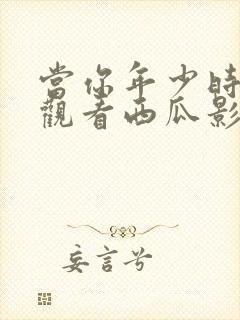 當你年少時
觀看西瓜影
妄言兮